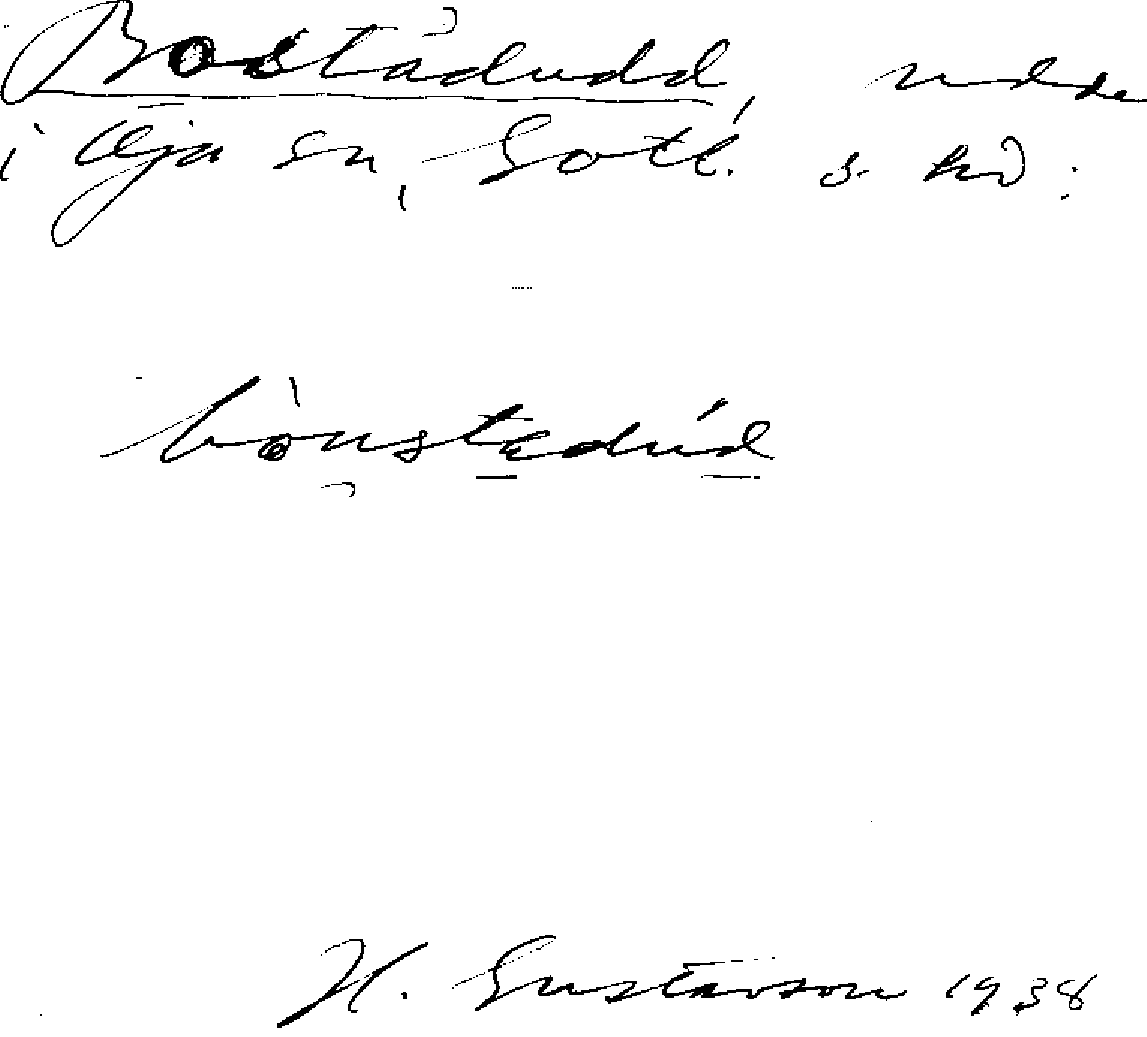 Bostadudd, udde
i Öja sn, Gotl. s. hd:
bòustadúd
H. Gustavson 1938